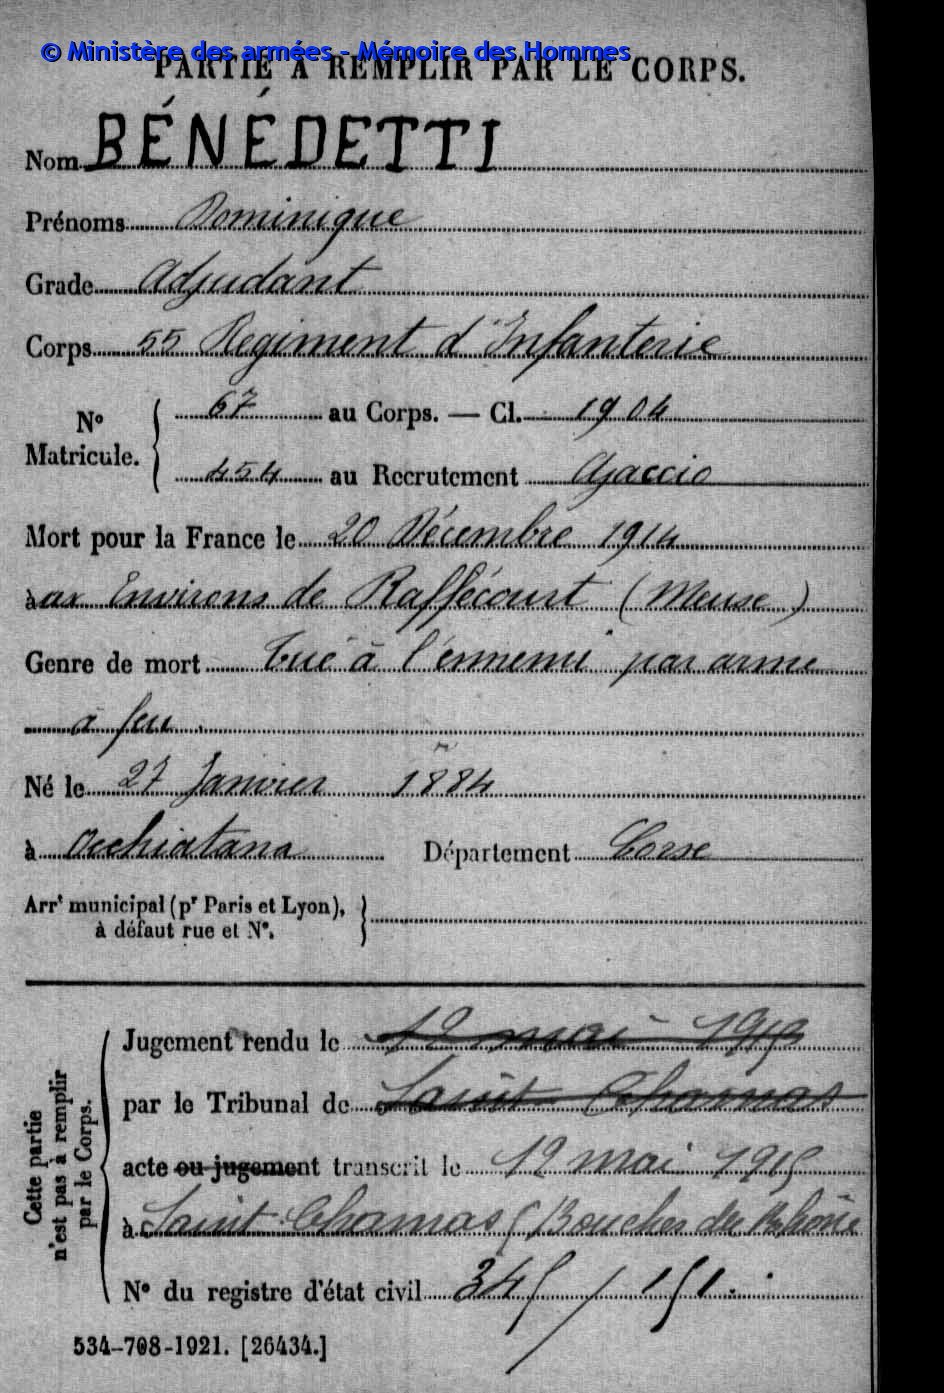 © Ministère des armées - Mémoire des Hommes
PARTIE À REMPLIR PAR LE CORPS.
Nom BÉNÉDETTI
Prénoms Dominique
Grade Adjudant
Corps 55 Regiment d'Infanterie
N° Matricule. { 67 au Corps. — Cl. 1904
454 au Recrutement Ajaccio
Mort pour la France le 20 Décembre 1914
à ax Environs de Raffécourt (Meuse)
Genre de mort Tué à l'ennemi par arme
à feu.
Né le 27 Janvier 1884
à Occhiatana Département Corse
Arrt municipal (pr Paris et Lyon), à défaut rue et N°. }
Cette partie n'est pas à remplir par le Corps.
Jugement rendu le 12 mai 1915
par le Tribunal de Saint Chamas
acte ou jugement transcrit le 12 mai 1915
à Saint Chamas (Bouches du Rhône
N° du registre d'état civil 345/151.
534-708-1921. [26434.]